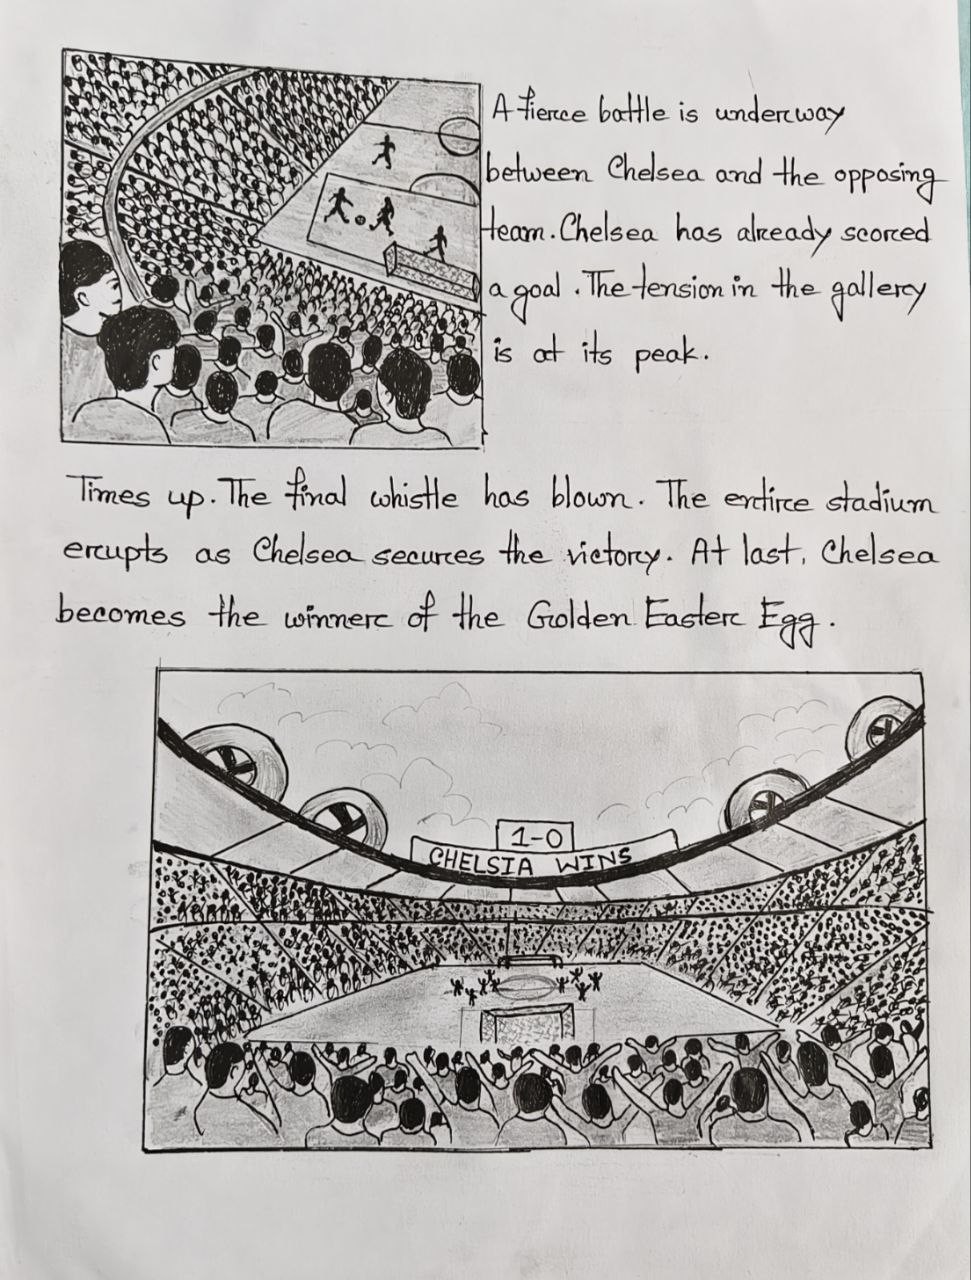 A fierce battle is underway
between Chelsea and the opposing
team. Chelsea has already scored
a goal. The tension in the gallery
is at its peak.
Times up. The final whistle has blown. The entire stadium
erupts as Chelsea secures the victory. At last, Chelsea
becomes the winner of the Golden Easter Egg.
1-0
CHELSIA WINS